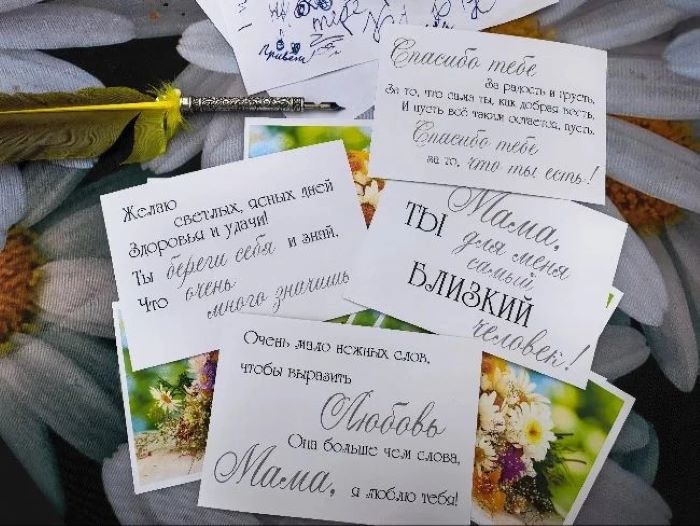 Привет
Спасибо тебе
За радость и грусть,
За то, что сама ты, как добрая весть,
И пусть всё таким остается, пусть.
Спасибо тебе
за то, что ты есть!
Желаю
светлых, ясных дней
Здоровья и удачи!
Ты береги себя и знай,
Что очень
много значишь
Мама,
ТЫ для меня
самый
БЛИЗКИЙ
человек!
Очень мало нежных слов,
чтобы выразить
Любовь
Она больше чем слова,
Мама, я люблю тебя!